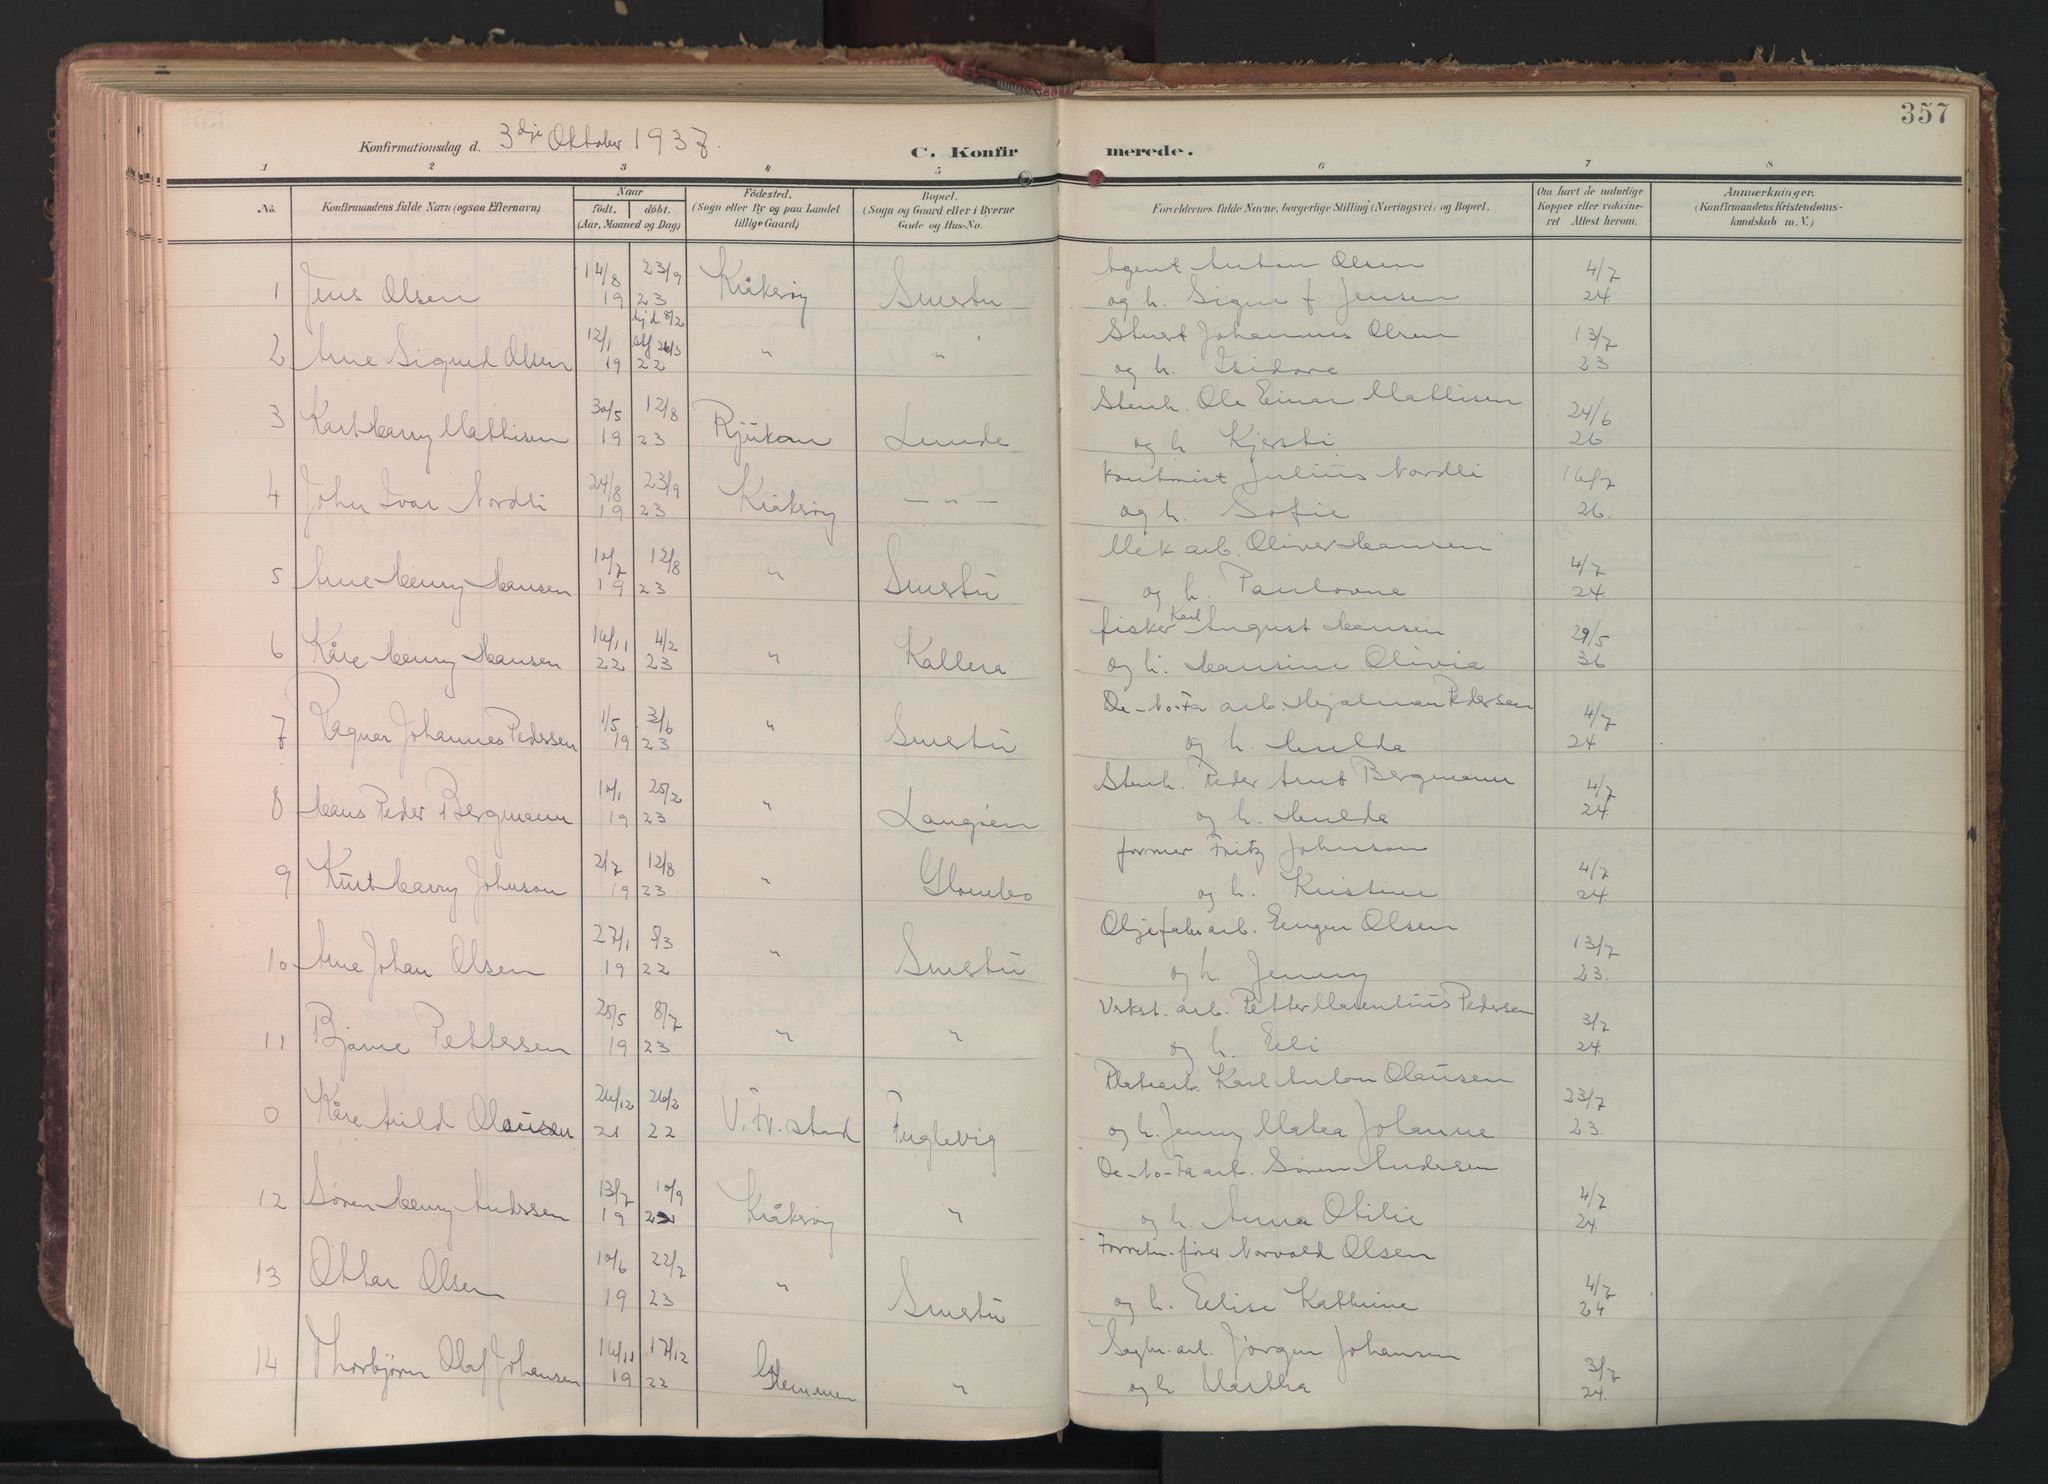 357
Konfirmationsdag d. 3dje Oktober 1937.
C. Konfirmerede.
1 2 3 4 5 6 7 8
No. Konfirmandens fulde Navn (ogsaa Efternavn) Naar födt. döbt. (Aar, Maaned og Dag) Födested. (Sogn eller By og paa Landet tillige Gaard) Bopæl. (Sogn og Gaard eller i Byerne Gade og Hus-No. Forældrenes fulde Navne, borgerlige Stilling (Næringsvei) og Bopæl. Om havt de naturlige Kopper eller vakcineret Attest herom. Anmærkninger. (Konfirmandens Kristendomskundskab m. V.)
1 Jens Olsen 14/8 19 23/9 23 Kråkerøy Smertu Agent Anton Olsen og h. Signe f Jensen 4/7 24
2 Arne Sigurd Olsen 12/1 19 hj.d. 8/2 stf 26/3 22 " " Stuert Johannes Olsen og h. Isidore 13/7 23
3 Karl Harry Mathisen 30/5 19 12/8 23 Rjukan Lunde Stenh. Ole Einar Mathisen og h Kjersti 24/6 26
4 John Ivar Nordli 24/8 19 23/9 23 Kråkerøy — " — Julius Nordli og h. Sofie 16/7 26.
5 Arne Henry Hansen 10/7 19 12/8 23 " Smertu Mek arb. Oliver Hansen og h. Paulovna 4/7 24.
6 Kåre Henry Hansen 16/11 22 4/2 23 " Kallera fisker Karl August Hansen og h. Hansine Olivia 29/5 36
7 Ragnar Johannes Pedersen 1/5 19 3/6 23 " Smertu De-No-Fa arb. Hjalmar Pedersen og h. Hulda 4/7 24
8 Hans Peder Bergmann 10/1 19 25/2 23 " Langøen Stenh. Peder Arnt Bergmann og h. Hulda 4/7 24.
9 Kurt Harry Johnson 2/7 19 12/8 23. " Glombo former Fritz Johnson og h. Kristine 4/7 24
10 Arne Johan Olsen 27/1 19 5/3 22 " Smertu Oljefabr arb. Eugen Olsen og h. Jenny 13/7 23.
11 Bjarne Pettersen 25/5 19 8/7 23 " " Verkst. arb. Petter Marentius Pedersen og h. Elli 3/7 24.
0 Kåre Arild Olausen 26/12 21 26/2 22 V. Fr. stad Fuglevig Platearb. Karl Anton Olausen og h. Jenny Matea Johanne 23/7 23.
12 Søren Henry Anderssen 13/7 19 10/9 Kråkerøy " De-No-Fa arb. Søren Andersen og h. Anna Otilie 4/7 24
13 Ottar Olsen 10/6 19 22/7 23 " Smertu Forretn. fører Norvald Olsen og h. Elise Kathrine 4/7 24
14 Thorbjørn Olaf Johansen 16/11 19 17/12 22 Glemmen " Sagbr. arb. Jørgen Johansen og h Martha 3/7 24.